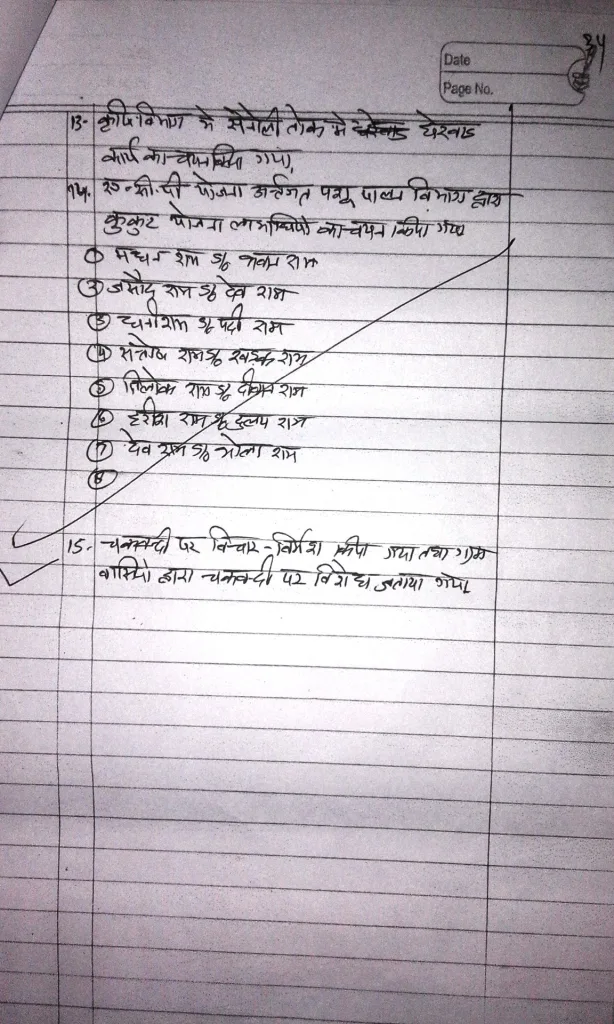 34
Date
Page No.
13- कृषि विभाग से सेनोली तोक मे घेरवाड
कार्य का चयन किया गया,
14. एस.सी.पी योजना अर्न्तगत पशु पालन विभाग द्वारा
कुकुट योजना लाभार्थियो का चयन किया गया
① राम S/o राम
② जसौद राम S/o देव राम
③ धनीराम S/o पदी राम
④ सन्तोष राम S/o खड़क राम
⑤ त्रिलोक राम S/o दीवान राम
⑥ हरीश राम S/o दलप राम
⑦ देव राम S/o भोला राम
⑧
15. चकबन्दी पर विचार-विर्मश किया गया तथा ग्राम
वासियो द्वारा चकबन्दी पर विरोध जताया गया